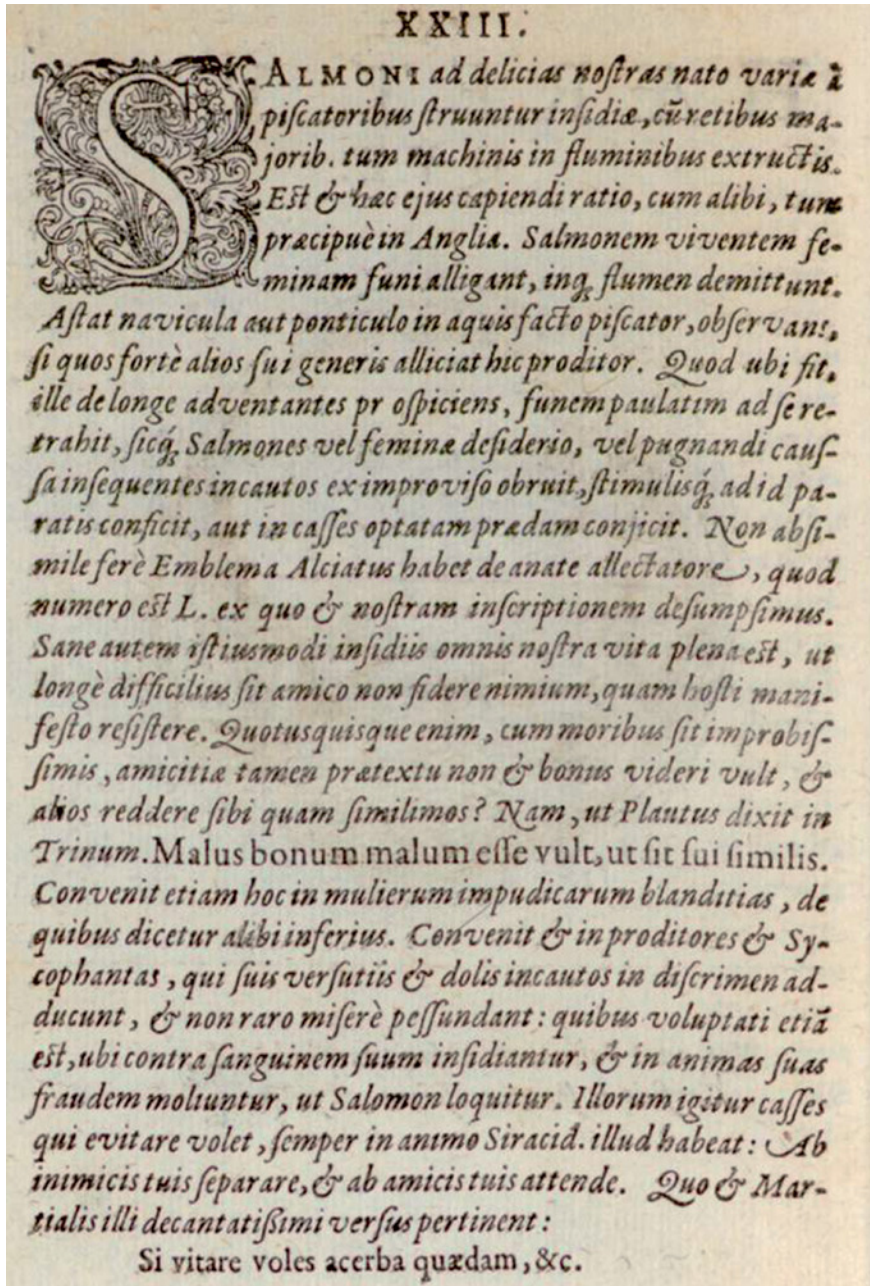 XXIII.
SALMONI ad delicias nostras nato variæ à
piscatoribus struuntur insidiæ, cũ retibus ma-
jorib. tum machinis in fluminibus extructis.
Est & hæc ejus capiendi ratio, cum alibi, tum
præcipuè in Anglia. Salmonem viventem fe-
minam funi alligant, inq; flumen demittunt.
Astat navicula aut ponticulo in aquis facto piscator, observans,
si quos fortè alios sui generis alliciat hic proditor. Quod ubi fit,
ille de longe adventantes prospiciens, funem paulatim ad se re-
trahit, sicq́; Salmones vel feminæ desiderio, vel pugnandi caus-
sa insequentes incautos ex improviso obruit, stimulisq́; ad id pa-
ratis conficit, aut in casses optatam prædam conjicit. Non absi-
mile ferè Emblema Alciatus habet de anate allectatore, quod
numero est L. ex quo & nostram inscriptionem desumpsimus.
Sane autem istiusmodi insidiis omnis nostra vita plena est, ut
longè difficilius sit amico non fidere nimium, quam hosti mani-
festo resistere. Quotusquisque enim, cum moribus sit improbis-
simis, amicitiæ tamen prætextu non & bonus videri vult, &
alios reddere sibi quam similimos? Nam, ut Plautus dixit in
Trinum. Malus bonum malum esse vult, ut sit sui similis.
Convenit etiam hoc in mulierum impudicarum blanditias, de
quibus dicetur alibi inferius. Convenit & in proditores & Sy-
cophantas, qui suis versutiis & dolis incautos in discrimen ad-
ducunt, & non raro miserè pessundant: quibus voluptati etiã
est, ubi contra sanguinem suum insidiantur, & in animas suas
fraudem moliuntur, ut Salomon loquitur. Illorum igitur casses
qui evitare volet, semper in animo Siracid. illud habeat: Ab
inimicis tuis separare, & ab amicis tuis attende. Quo & Mar-
tialis illi decantatißimi versus pertinent:
Si vitare voles acerba quædam, &c.